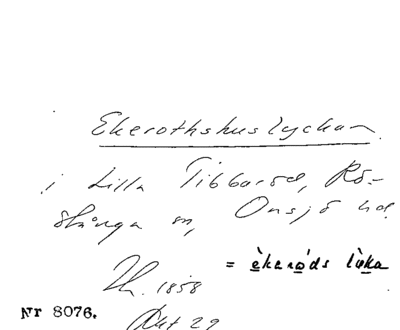 Ekerothshuslyckan
i Lilla Tibbaröd, Rö-
stånga sn, Onsjö hd.
= èkerǒds lỳka
1858
Nr 8076.
Akt 29